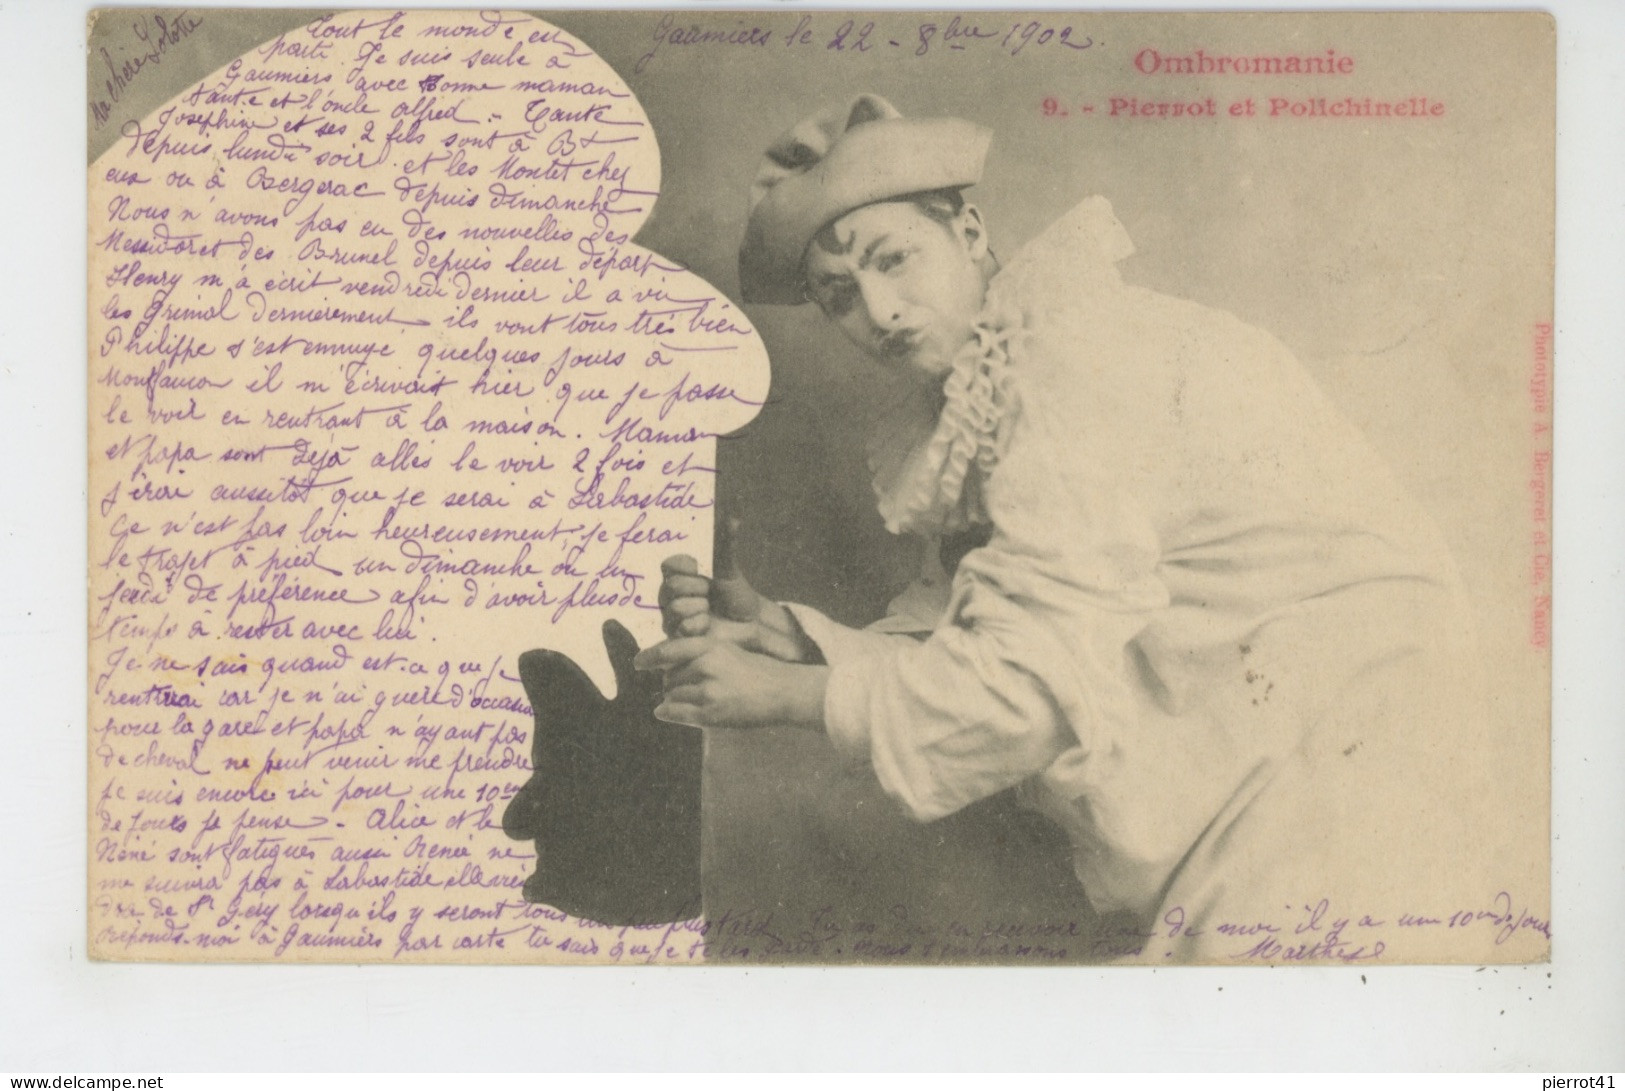 Ma chère Lolotte
Gaumiers le 22 - 8bre 1902.
Ombromanie
9. - Pierrot et Polichinelle
Tout le monde est
parti. Je suis seule à
Gaumiers avec Bonne maman
tante et l'oncle Alfred. - Tante
Josephine et ses 2 fils sont à Bx
depuis lundi soir et les Montet chez
eux ou à Bergerac depuis dimanche
Nous n'avons pas eu des nouvelles des
et des Brunel depuis leur départ
Henry m'a écrit vendredi dernier il a vu
les Grimal dernièrement, ils vont tous très bien
Philippe s'est ennuyé quelques jours à
Montfaucon il m'écrivait hier que je passe
le voir en rentrant à la maison. Maman
et papa sont déjà allés le voir 2 fois et
j'irai aussitôt que je serai à Labastide
Ce n'est pas loin heureusement, je ferai
le trajet à pied un dimanche ou un
jeudi de préférence afin d'avoir plus de
temps à rester avec lui.
Je ne sais quand est-ce que je
rentrerai car je n'ai guère d'occasion
pour la gare et papa n'ayant pas
de cheval ne peut venir me prendre
je suis encore ici pour une 10ne
de jours je pense - Alice et le
Néné sont fatigués aussi Renée ne
me suivra pas à Labastide elle vien
dra de St Géry lorsqu'ils y seront tous un peu plus tard. Tu as dû en recevoir une de moi il y a une 10ne de jours
Réponds-moi à Gaumiers par carte tu sais que je Nous t'embrassons tous. Marthe
Phototypie A. Bergeret et Cie. Nancy
pierrot41